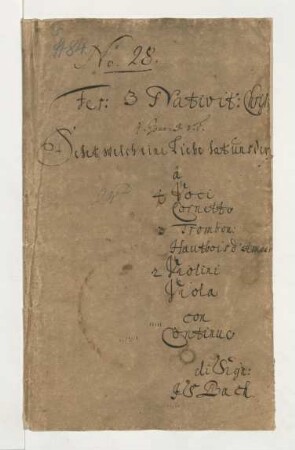 No: 28.
Fer: 3 Nativit: Chr:
Sehet welch eine Liebe hat uns der
â
4 Voci
Cornetto
3 Trombon:
Hautbois d'Amour
2 Violini
Viola
con
Continuo
di Sign:
JS Bach